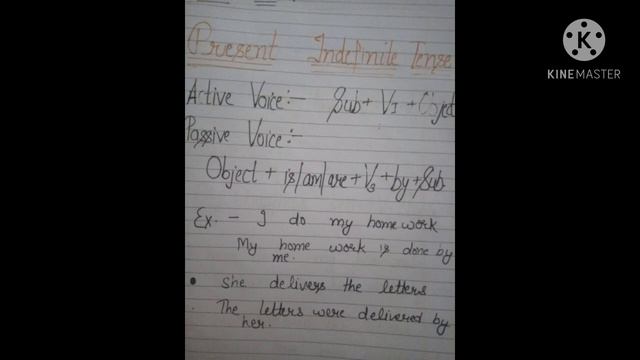 Present Indefinite Tense
KINEMASTER
Active Voice:- Sub + V1 + Object
Passive Voice:-
Object + is/am/are + V3 + by + Sub
Ex. - I do my home work
My home work is done by
me.
• She delivers the letters
. The letters were delivered by
her.